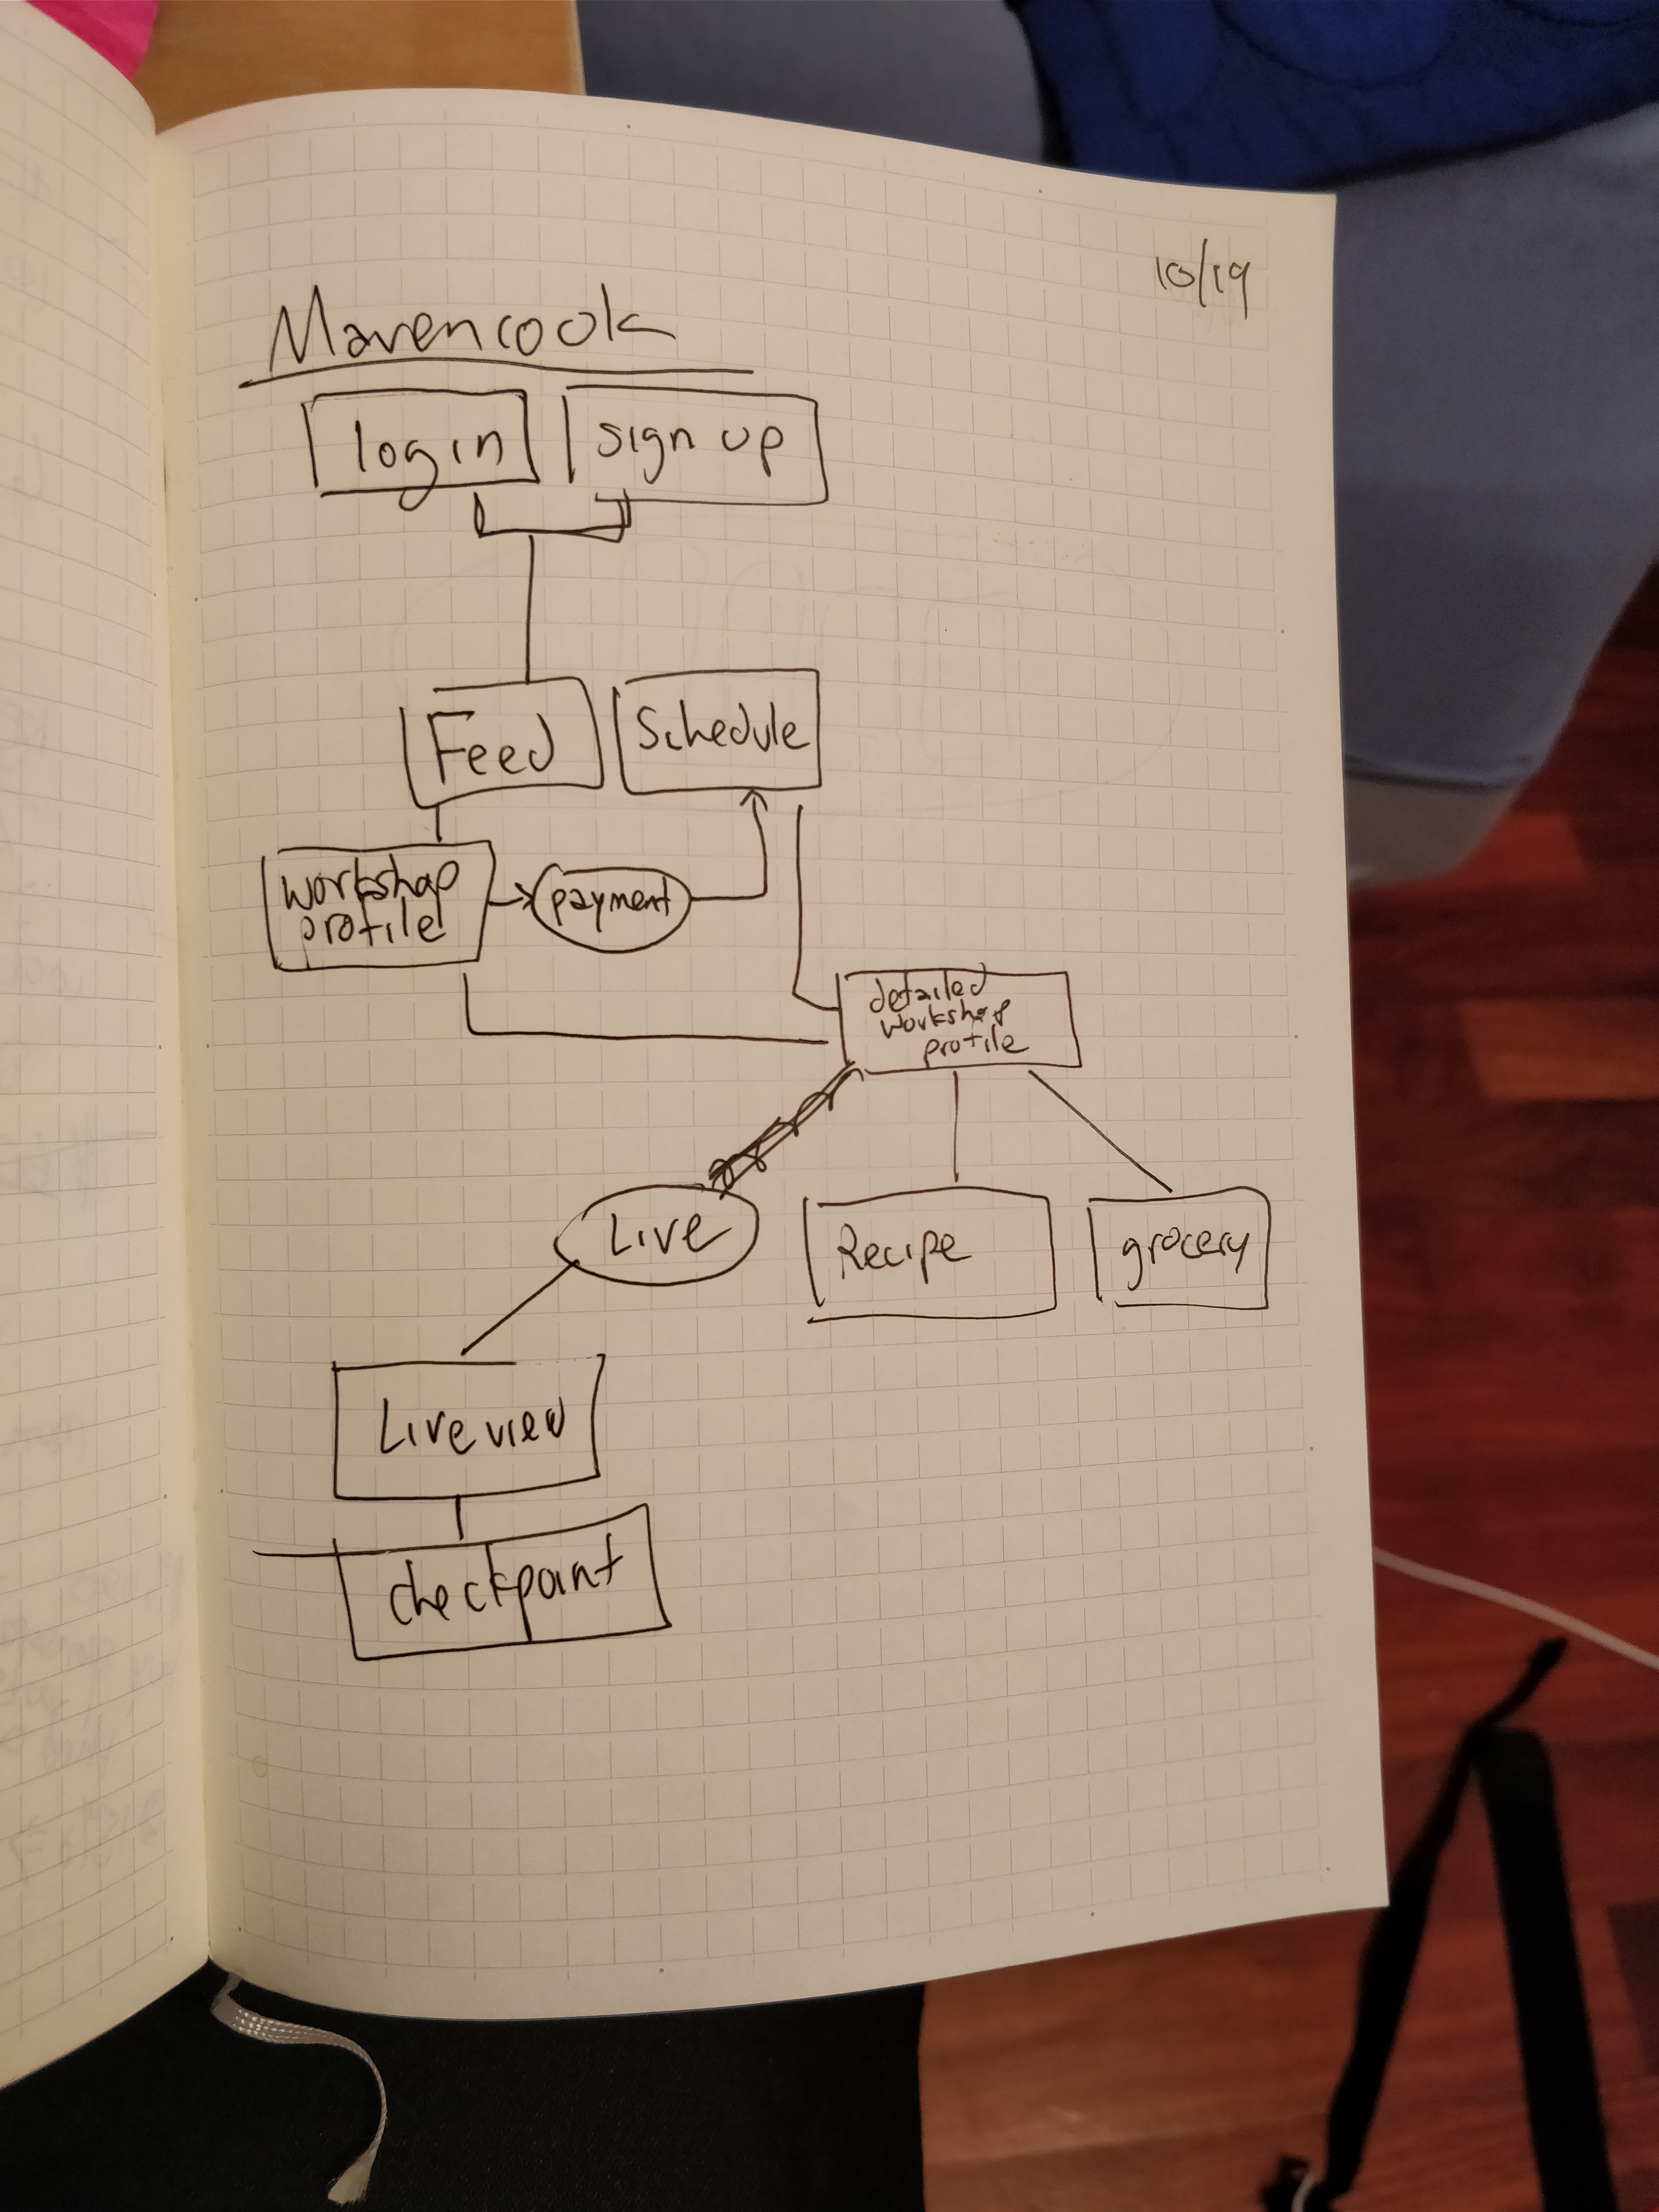 10/19
Mavencook
log in
sign up
Feed
Schedule
workshop
profile
payment
detailed
workshop
profile
Live
Recipe
grocery
Live view
checkpoint